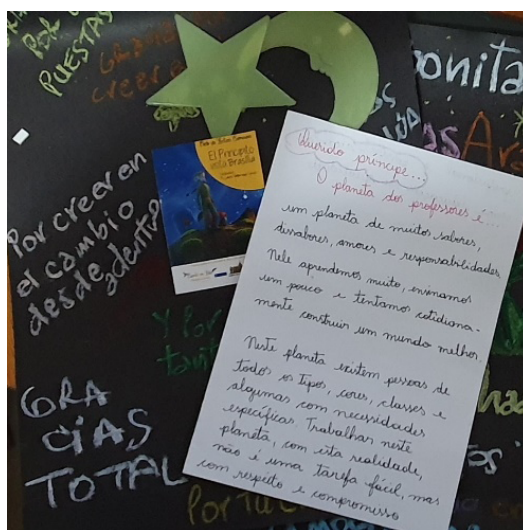 POR
PUESTAS
creer e
onita
Por creer en
el cambio
desde adentro
El Principito
Querido príncipe...
O planeta dos professores é...
um planeta de muitos sabores,
dissabores, amores e responsabilidades
Nele aprendemos muito, ensinamos
um pouco e tentamos cotidiana-
mente construir um mundo melhor.
Neste planeta existem pessoas de
todos os tipos, cores, classes e
algumas com necessidades
específicas. Trabalhar neste
planeta, com esta realidade,
não é uma tarefa fácil, mas
com respeito e compromisso
Y Por
GRA
CIAS
TOTAL
Por Tu